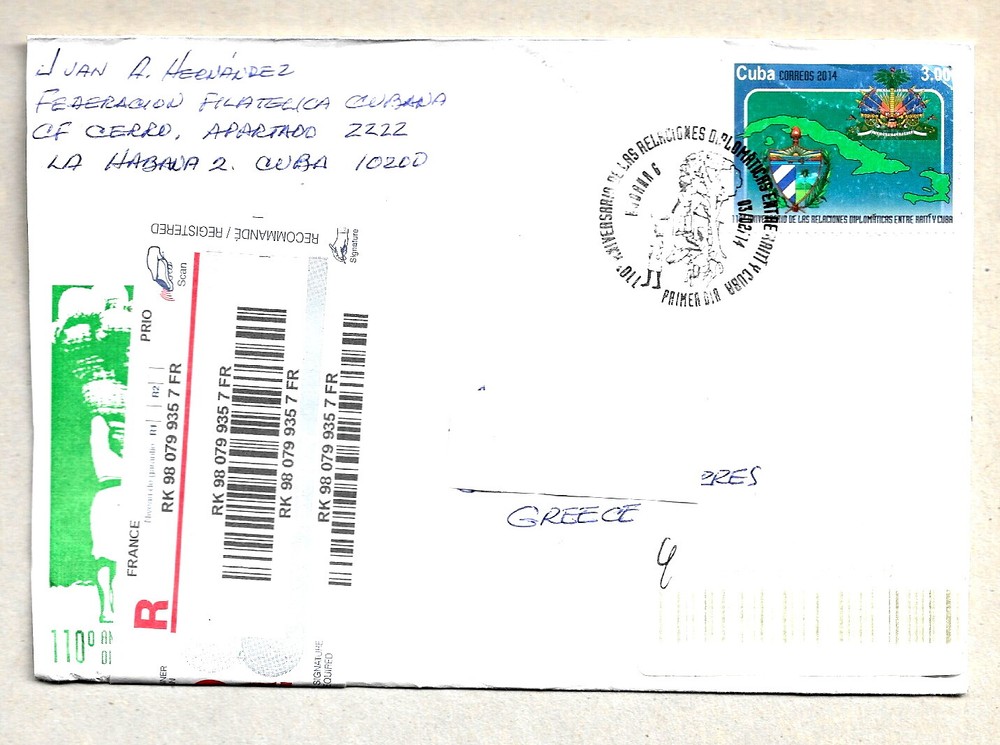 JUAN A. HERNÁNDEZ
FEDERACION FILATELICA CUBANA
CF CERRO, APARTADO 2222
LA HABANA 2. CUBA 10200
Cuba CORREOS 2014 3.00
110º ANIVERSARIO DE LAS RELACIONES DIPLOMÁTICAS ENTRE HAITÍ Y CUBA
110º ANIVERSARIO DE LAS RELACIONES DIPLOMÁTICAS ENTRE HAITI Y CUBA
HABANA 6
03/02/14
PRIMER DIA
RECOMMANDÉ / REGISTERED
Signature
Scan
PRIO
Niveau de garantie R1 R2
RK 98 079 935 7 FR
RK 98 079 935 7 FR
RK 98 079 935 7 FR
RK 98 079 935 7 FR
FRANCE
R
SIGNATURE
EQUIRED
NER
110º AN
DI
ERES
GREECE